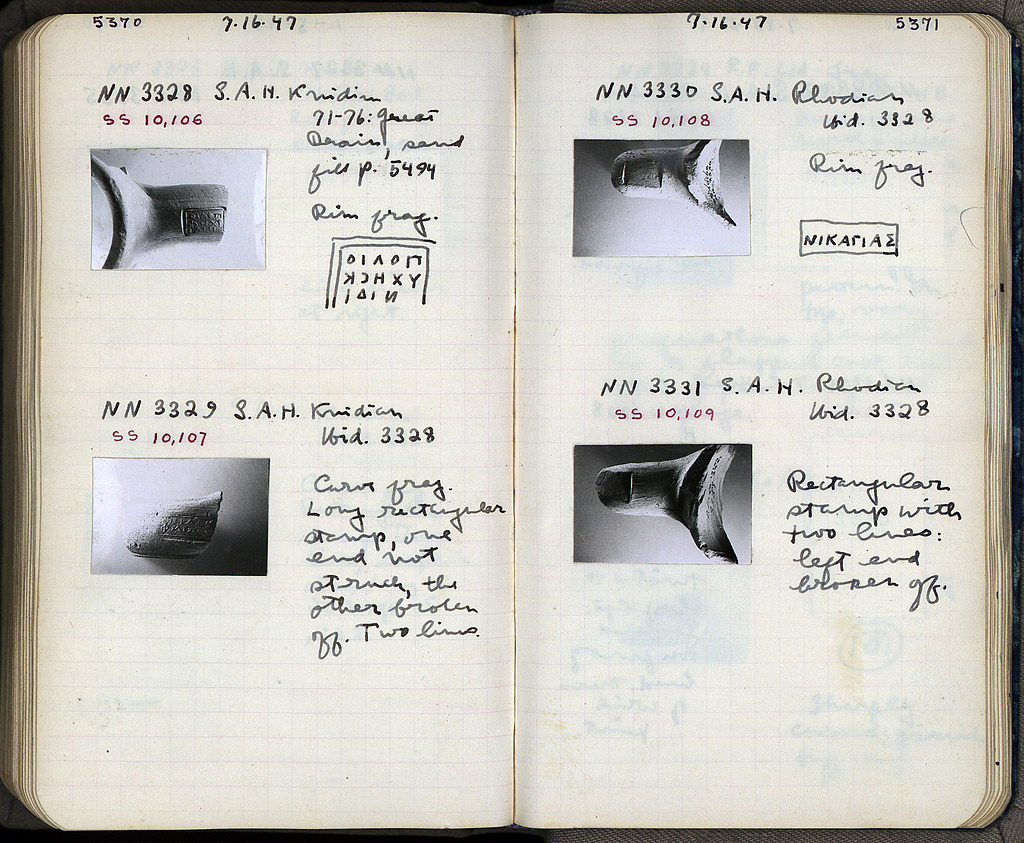 5370 7.16.47
NN 3328 S.A.H. Knidian
SS 10,106
71-76: Great
Drain, sand
fill p. 5494
Rim frag.
ΟΙΛΟΠ
ΥΧΗϽΚ
ΙΔΙΝ
NN 3329 S.A.H. Knidian
SS 10,107
Ibid. 3328
Curve frag.
Long rectangular
stamp, one
end not
struck, the
other broken
off. Two lines.
7.16.47 5371
NN 3330 S.A.H. Rhodian
SS 10,108
Ibid. 3328
Rim frag.
ΝΙΚΑΓΙΑΣ
NN 3331 S.A.H. Rhodian
SS 10,109
Ibid. 3328
Rectangular
stamp with
two lines:
left end
broken off.